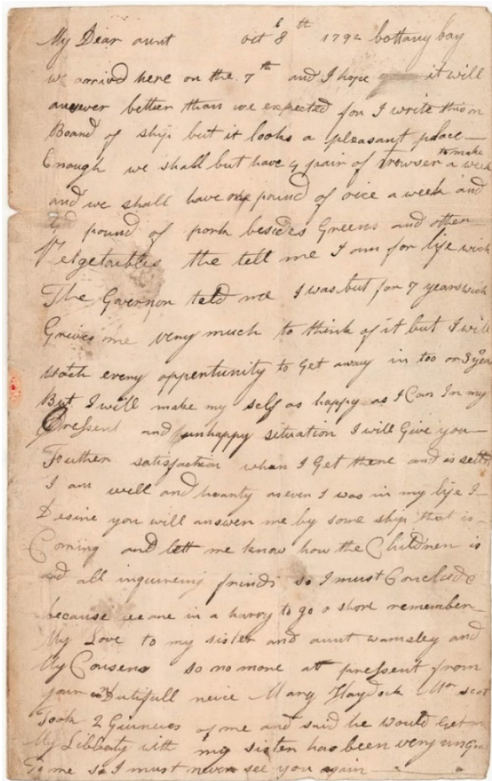 My Dear aunt oct 8th 1792 bottany bay
we arrivd here on the 7th and I hope it will
answer better than we expected for I write this on
Board of ship but it looks a pleasant place
Enough we shall but have 4 pair of trowser to make a week
and we shall have one pound of rice a week and
4 pound of pork besides Greens and other
Vegetaibles the tell me I am for life wich
The Governon teld me I was but for 7 years wich
Grives me very much to think of it but I will
watch every oppertunity to Get away in too or 3 years
But I will make my self as happy as I Can In my
Pressent and unhappy situation I will Give you
Further satisfaction when I Get there and is settled
I am well and hearty as ever I was in my life I
Desire you will answer me by some ship that is
Coming and lett me know how the Children is
and all inquireing frinds so I must Conclude
because we are in a harry to go a shore remember
My Love to my sister and aunt wamsley and
My Cousens so no more at pressent from
your Dutifull neice Mary Haydock Mr scot
Took 2 Guineas of me and said he would Get me
My Libbaty with my sister has been very
To me so I must never see you again